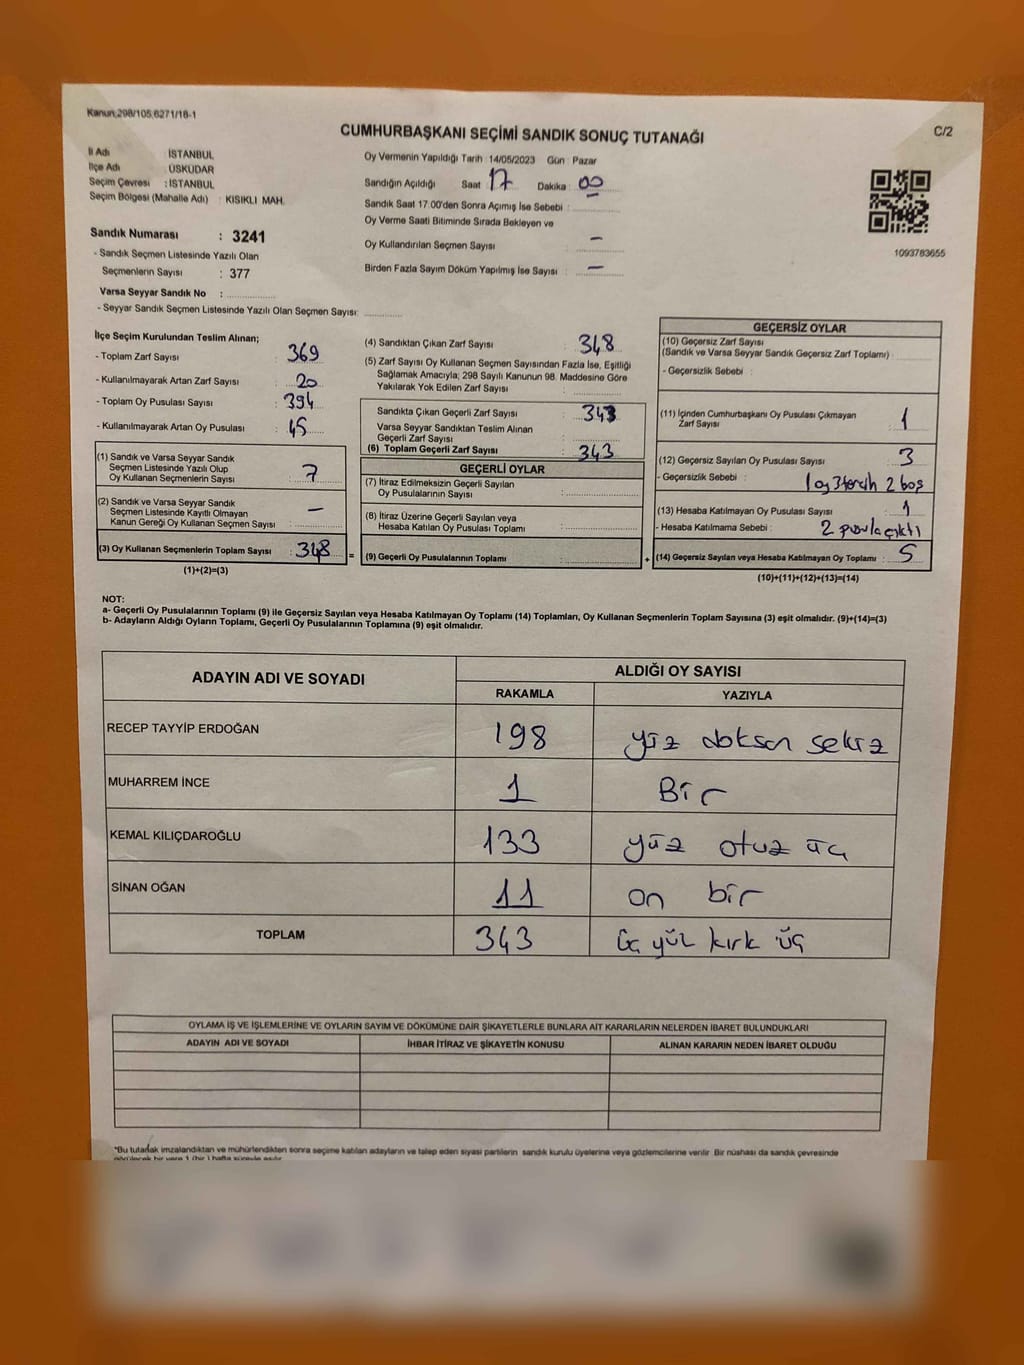 Kanun;298/105;6271/18-1
C/2
CUMHURBAŞKANI SEÇİMİ SANDIK SONUÇ TUTANAĞI
İl Adı : İSTANBUL
İlçe Adı : ÜSKÜDAR
Seçim Çevresi : İSTANBUL
Seçim Bölgesi (Mahalle Adı) : KISIKLI MAH.
Oy Vermenin Yapıldığı Tarih : 14/05/2023 Gün : Pazar
Sandığın Açıldığı Saat : 17 Dakika : 00
Sandık Saat 17:00'den Sonra Açımış İse Sebebi :
Oy Verme Saati Bitiminde Sırada Bekleyen ve
Oy Kullandırılan Seçmen Sayısı : –
Birden Fazla Sayım Döküm Yapılmış İse Sayısı : –
1093783655
Sandık Numarası : 3241
- Sandık Seçmen Listesinde Yazılı Olan
Seçmenlerin Sayısı : 377
Varsa Seyyar Sandık No :
- Seyyar Sandık Seçmen Listesinde Yazılı Olan Seçmen Sayısı:
İlçe Seçim Kurulundan Teslim Alınan;
- Toplam Zarf Sayısı : 369
- Kullanılmayarak Artan Zarf Sayısı : 20
- Toplam Oy Pusulası Sayısı : 394
- Kullanılmayarak Artan Oy Pusulası : 45
(1) Sandık ve Varsa Seyyar Sandık
Seçmen Listesinde Yazılı Olup
Oy Kullanan Seçmenlerin Sayısı : 7
(2) Sandık ve Varsa Seyyar Sandık
Seçmen Listesinde Kayıtlı Olmayan
Kanun Gereği Oy Kullanan Seçmen Sayısı : –
(3) Oy Kullanan Seçmenlerin Toplam Sayısı : 348
(1)+(2)=(3)
(4) Sandıktan Çıkan Zarf Sayısı : 348
(5) Zarf Sayısı Oy Kullanan Seçmen Sayısından Fazla İse, Eşitliği
Sağlamak Amacıyla; 298 Sayılı Kanunun 98. Maddesine Göre
Yakılarak Yok Edilen Zarf Sayısı :
Sandıkta Çıkan Geçerli Zarf Sayısı : 343
Varsa Seyyar Sandıktan Teslim Alınan
Geçerli Zarf Sayısı :
(6) Toplam Geçerli Zarf Sayısı : 343
=
GEÇERLİ OYLAR
(7) İtiraz Edilmeksizin Geçerli Sayılan
Oy Pusulalarının Sayısı :
(8) İtiraz Üzerine Geçerli Sayılan veya
Hesaba Katılan Oy Pusulası Toplamı :
(9) Geçerli Oy Pusulalarının Toplamı :
+
GEÇERSİZ OYLAR
(10) Geçersiz Zarf Sayısı
(Sandık ve Varsa Seyyar Sandık Geçersiz Zarf Toplamı) :
- Geçersizlik Sebebi :
(11) İçinden Cumhurbaşkanı Oy Pusulası Çıkmayan
Zarf Sayısı : 1
(12) Geçersiz Sayılan Oy Pusulası Sayısı : 3
- Geçersizlik Sebebi : 1 oy 3 tercih 2 boş
(13) Hesaba Katılmayan Oy Pusulası Sayısı : 1
- Hesaba Katılmama Sebebi : 2 pusula çıktı
(14) Geçersiz Sayılan veya Hesaba Katılmayan Oy Toplamı : 5
(10)+(11)+(12)+(13)=(14)
NOT:
a- Geçerli Oy Pusulalarının Toplamı (9) ile Geçersiz Sayılan veya Hesaba Katılmayan Oy Toplamı (14) Toplamları, Oy Kullanan Seçmenlerin Toplam Sayısına (3) eşit olmalıdır. (9)+(14)=(3)
b- Adayların Aldığı Oyların Toplamı, Geçerli Oy Pusulalarının Toplamına (9) eşit olmalıdır.
ADAYIN ADI VE SOYADI
ALDIĞI OY SAYISI
RAKAMLA YAZIYLA
RECEP TAYYİP ERDOĞAN 198 yüz doksan sekiz
MUHARREM İNCE 1 Bir
KEMAL KILIÇDAROĞLU 133 yüz otuz üç
SİNAN OĞAN 11 on bir
TOPLAM 343 üç yüz kırk üç
OYLAMA İŞ VE İŞLEMLERİNE VE OYLARIN SAYIM VE DÖKÜMÜNE DAİR ŞİKAYETLERLE BUNLARA AİT KARARLARIN NELERDEN İBARET BULUNDUKLARI
ADAYIN ADI VE SOYADI İHBAR İTİRAZ VE ŞİKAYETİN KONUSU ALINAN KARARIN NEDEN İBARET OLDUĞU
*Bu tutanak imzalandıktan ve mühürlendikten sonra seçime katılan adayların ve talep eden siyasi partilerin sandık kurulu üyelerine veya gözlemcilerine verilir. Bir nüshası da sandık çevresinde